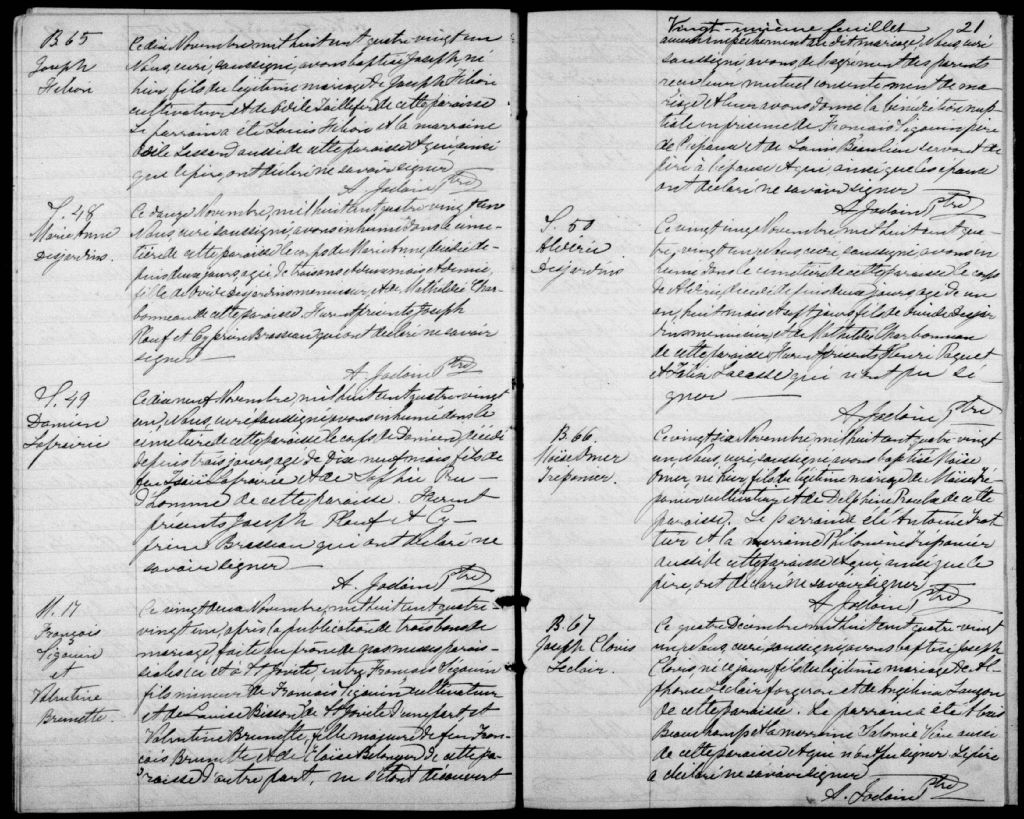 B 65
Joseph
Hebon
Ce dix Novembre, mil huit cent quatre vingt un
Nous, curé, soussigné, avons baptisé Joseph, né
hier, fils du légitime mariage de Joseph Hebon
cultivateur et de Odile Taillefer de cette paroisse
Le parrain a été Louis Hebon et la marraine
Odile Lessard aussi de cette paroisse et qui ainsi
que le père, ont déclaré ne savoir signer
A. Jodoin Ptre
S. 48
Marie Anne
Desjardins.
Ce douze Novembre, mil huit cent quatre vingt un
Nous, curé soussigné, avons inhumé dans le cime-
tière de cette paroisse le corps de Marie Anne, décédée de-
puis deux jours agée de trois ans et deux mois et demie,
fille de Ovide Desjardins menuisier, et de Mathilde Char-
bonneau de cette paroisse. Furent présents Joseph
Plouf et Cyprien Brasseau qui ont déclaré ne savoir
signer
A. Jodoin Ptre
S. 49
Damien
Lafrairie
Ce dix neuf Novembre, mil huit cent quatre-vingt
un, Nous, curé soussigné, avons inhumé dans le
cimetière de cette paroisse le corps de Damien, décédé
depuis trois jours agé de dix neuf mois fils de
feu Lafrairie et de Sophie Pru-
d'homme de cette paroisse. Furent
présents Joseph Plouf et Cy-
prien Brasseau qui ont déclaré ne
savoir signer
A. Jodoin Ptre
M. 17
François
Légouin
et
Valentine
Brunette.
Ce vingt deux Novembre, mil huit cent quatre-
vingt un, après la publication de trois bans de
mariage, faite au prône de nos messes parois-
siales ici et à St Jovite, entre François Légouin
fils mineur de François Légouin cultivateur
et de Louise Bisson de St Jovite d'une part, et
Valentine Brunette, fille majeure de feu Fran-
çois Brunette et de Eloïse Bélanger de cette pa-
roisse d'autre part, ne s'étant découvert
Vingt-unième feuillet 21
aucun empêchement au dit mariage, Nous, curé
soussigné, avons, de l'agrément des parents
reçu leur mutuel consentement de ma-
riage et leur avons donné la bénédiction nup-
tiale en présence de François Légouin père
de l'époux et de Louis Beaulieu servant de
père à l'épouse et qui ainsi que les époux
ont déclaré ne savoir signer
A. Jodoin Ptre
S. 50
Aldérie
Desjardins
Ce vingt cinq Novembre, mil huit cent qua-
tre, vingt un, Nous, curé, soussigné, avons in-
humé dans le cimetière de cette paroisse le corps
de Aldérie, décédé depuis deux jours agé de un
an, huit mois et sept jours fils de Ovide Desjar-
dins menuisier, et de Mathilde Charbonneau
de cette paroisse. Furent présents Henri Paquet
et Félix Lacasse qui n'ont pu si-
gner
A. Jodoin Ptre
B. 66.
Moïse Omer
Trépanier.
Ce vingt six Novembre, mil huit cent quatre vingt
un Nous, curé, soussigné, avons baptisé Moïse
Omer, né hier, fils du légitime mariage de Moïse Tré-
panier cultivateur, et de Delphine Proulx de cette
paroisse. Le parrain a été Antoine Trot-
tier et la marraine Philomène Trépanier
aussi de cette paroisse et qui, ainsi que le
père, ont déclaré ne savoir signer
A. Jodoin Ptre
B. 67
Joseph Clovis
Leclair.
Ce quatre Décembre, mil huit cent quatre-vingt
un, Nous, curé, soussigné, avons baptisé Joseph
Clovis, né ce jour, fils du légitime mariage de Al-
phonse Leclair forgeron et de Angélina Lauzon
de cette paroisse. Le parrain a été Aloïs
Beauchamp et la marraine Salomé aussi
de cette paroisse et qui n'ont pu signer. Le père
a déclaré ne savoir signer
A. Jodoin Ptre